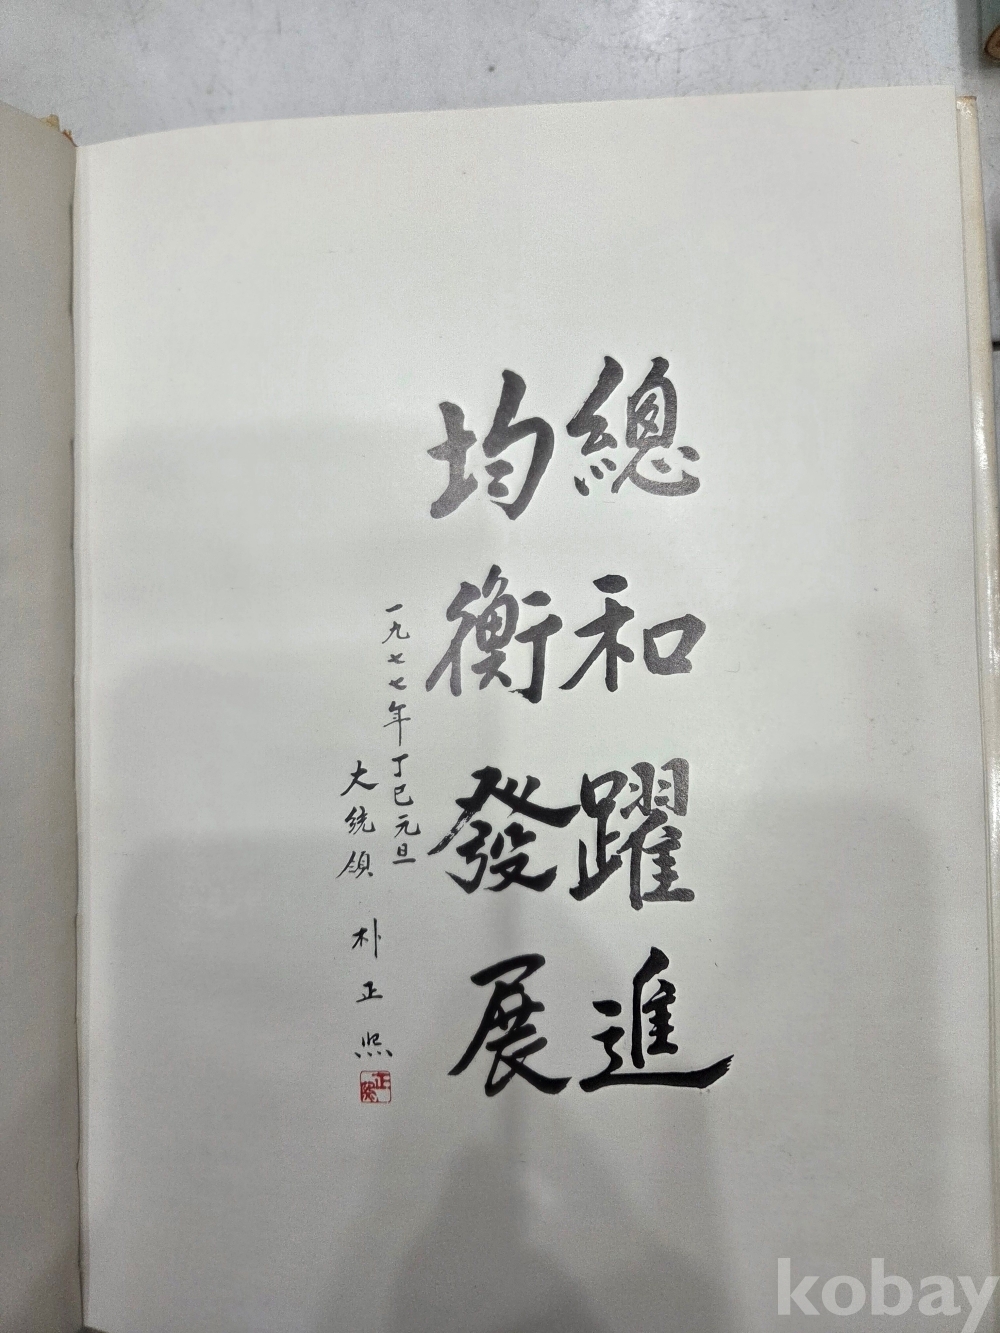 總和躍進
均衡發展
一九七七年丁巳元旦
大統領 朴正熙
正熙
kobay